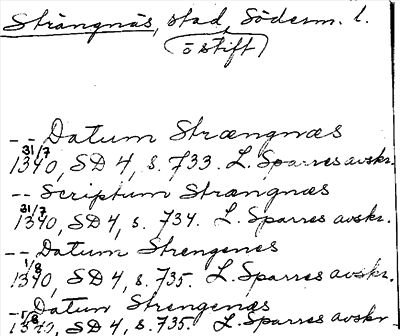 Strängnäs, stad, Söderm. l.
(östift)
-- Datum Strængnæs
31/7
1340, SD 4, s. 733. L. Sparres avskr.
-- Scriptum Strængnæs
31/7
1340, SD 4, s. 734. L. Sparres avskr.
-- Datum Strengenes
1/8
1340, SD 4, s. 735. L. Sparres avskr.
-- Datum Strengenæs
1/8
1340, SD 4, s. 735. L. Sparres avskr.